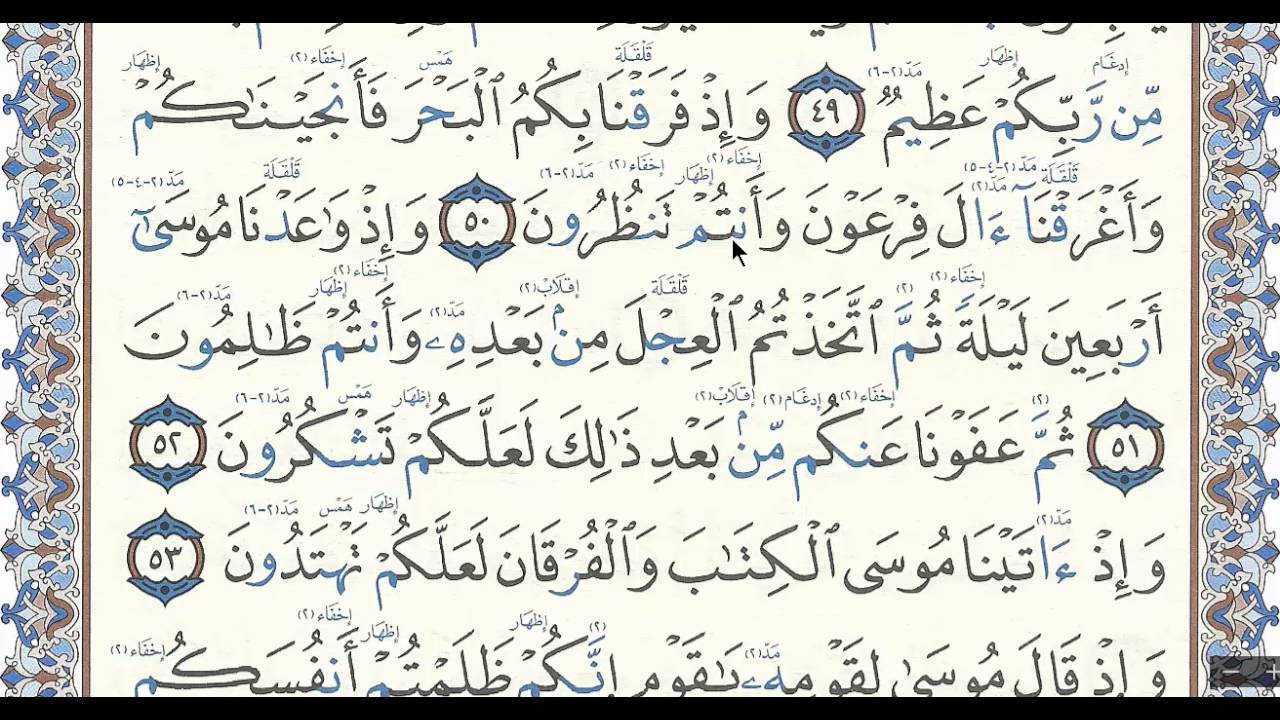 إدغام إظهار مَدّ(٢-٦) قَلْقَلَة هَمْس إخفاء(٢) إظهار
مِّن رَّبِّكُمْ عَظِيمٌ ٤٩ وَإِذْ فَرَقْنَا بِكُمُ ٱلْبَحْرَ فَأَنجَيْنَـٰكُمْ
قَلْقَلَة مَدّ(٢-٤-٥) مَدّ(٢) إخفاء(٢) إظهار إخفاء(٢) مَدّ(٢-٦) قَلْقَلَة مَدّ(٢-٤-٥)
وَأَغْرَقْنَآ ءَالَ فِرْعَوْنَ وَأَنتُمْ تَنظُرُونَ ٥٠ وَإِذْ وَٰعَدْنَا مُوسَىٰٓ
إخفاء(٢) (٢) قَلْقَلَة إقلاب(٢) مَدّ(٢) إخفاء(٢) إظهار مَدّ(٢-٦)
أَرْبَعِينَ لَيْلَةً ثُمَّ ٱتَّخَذْتُمُ ٱلْعِجْلَ مِنۢ بَعْدِهِۦ وَأَنتُمْ ظَـٰلِمُونَ
(٢) إخفاء(٢) إدغام(٢) إقلاب(٢) إظهار هَمْس مَدّ(٢-٦)
٥١ ثُمَّ عَفَوْنَا عَنكُم مِّنۢ بَعْدِ ذَٰلِكَ لَعَلَّكُمْ تَشْكُرُونَ ٥٢
مَدّ(٢) إظهار هَمْس مَدّ(٢-٦)
وَإِذْ ءَاتَيْنَا مُوسَى ٱلْكِتَـٰبَ وَٱلْفُرْقَانَ لَعَلَّكُمْ تَهْتَدُونَ ٥٣
مَدّ(٢) (٢) إظهار إظهار إخفاء(٢) إخفاء(٢)
وَإِذْ قَالَ مُوسَىٰ لِقَوْمِهِۦ يَـٰقَوْمِ إِنَّكُمْ ظَلَمْتُمْ أَنفُسَكُم